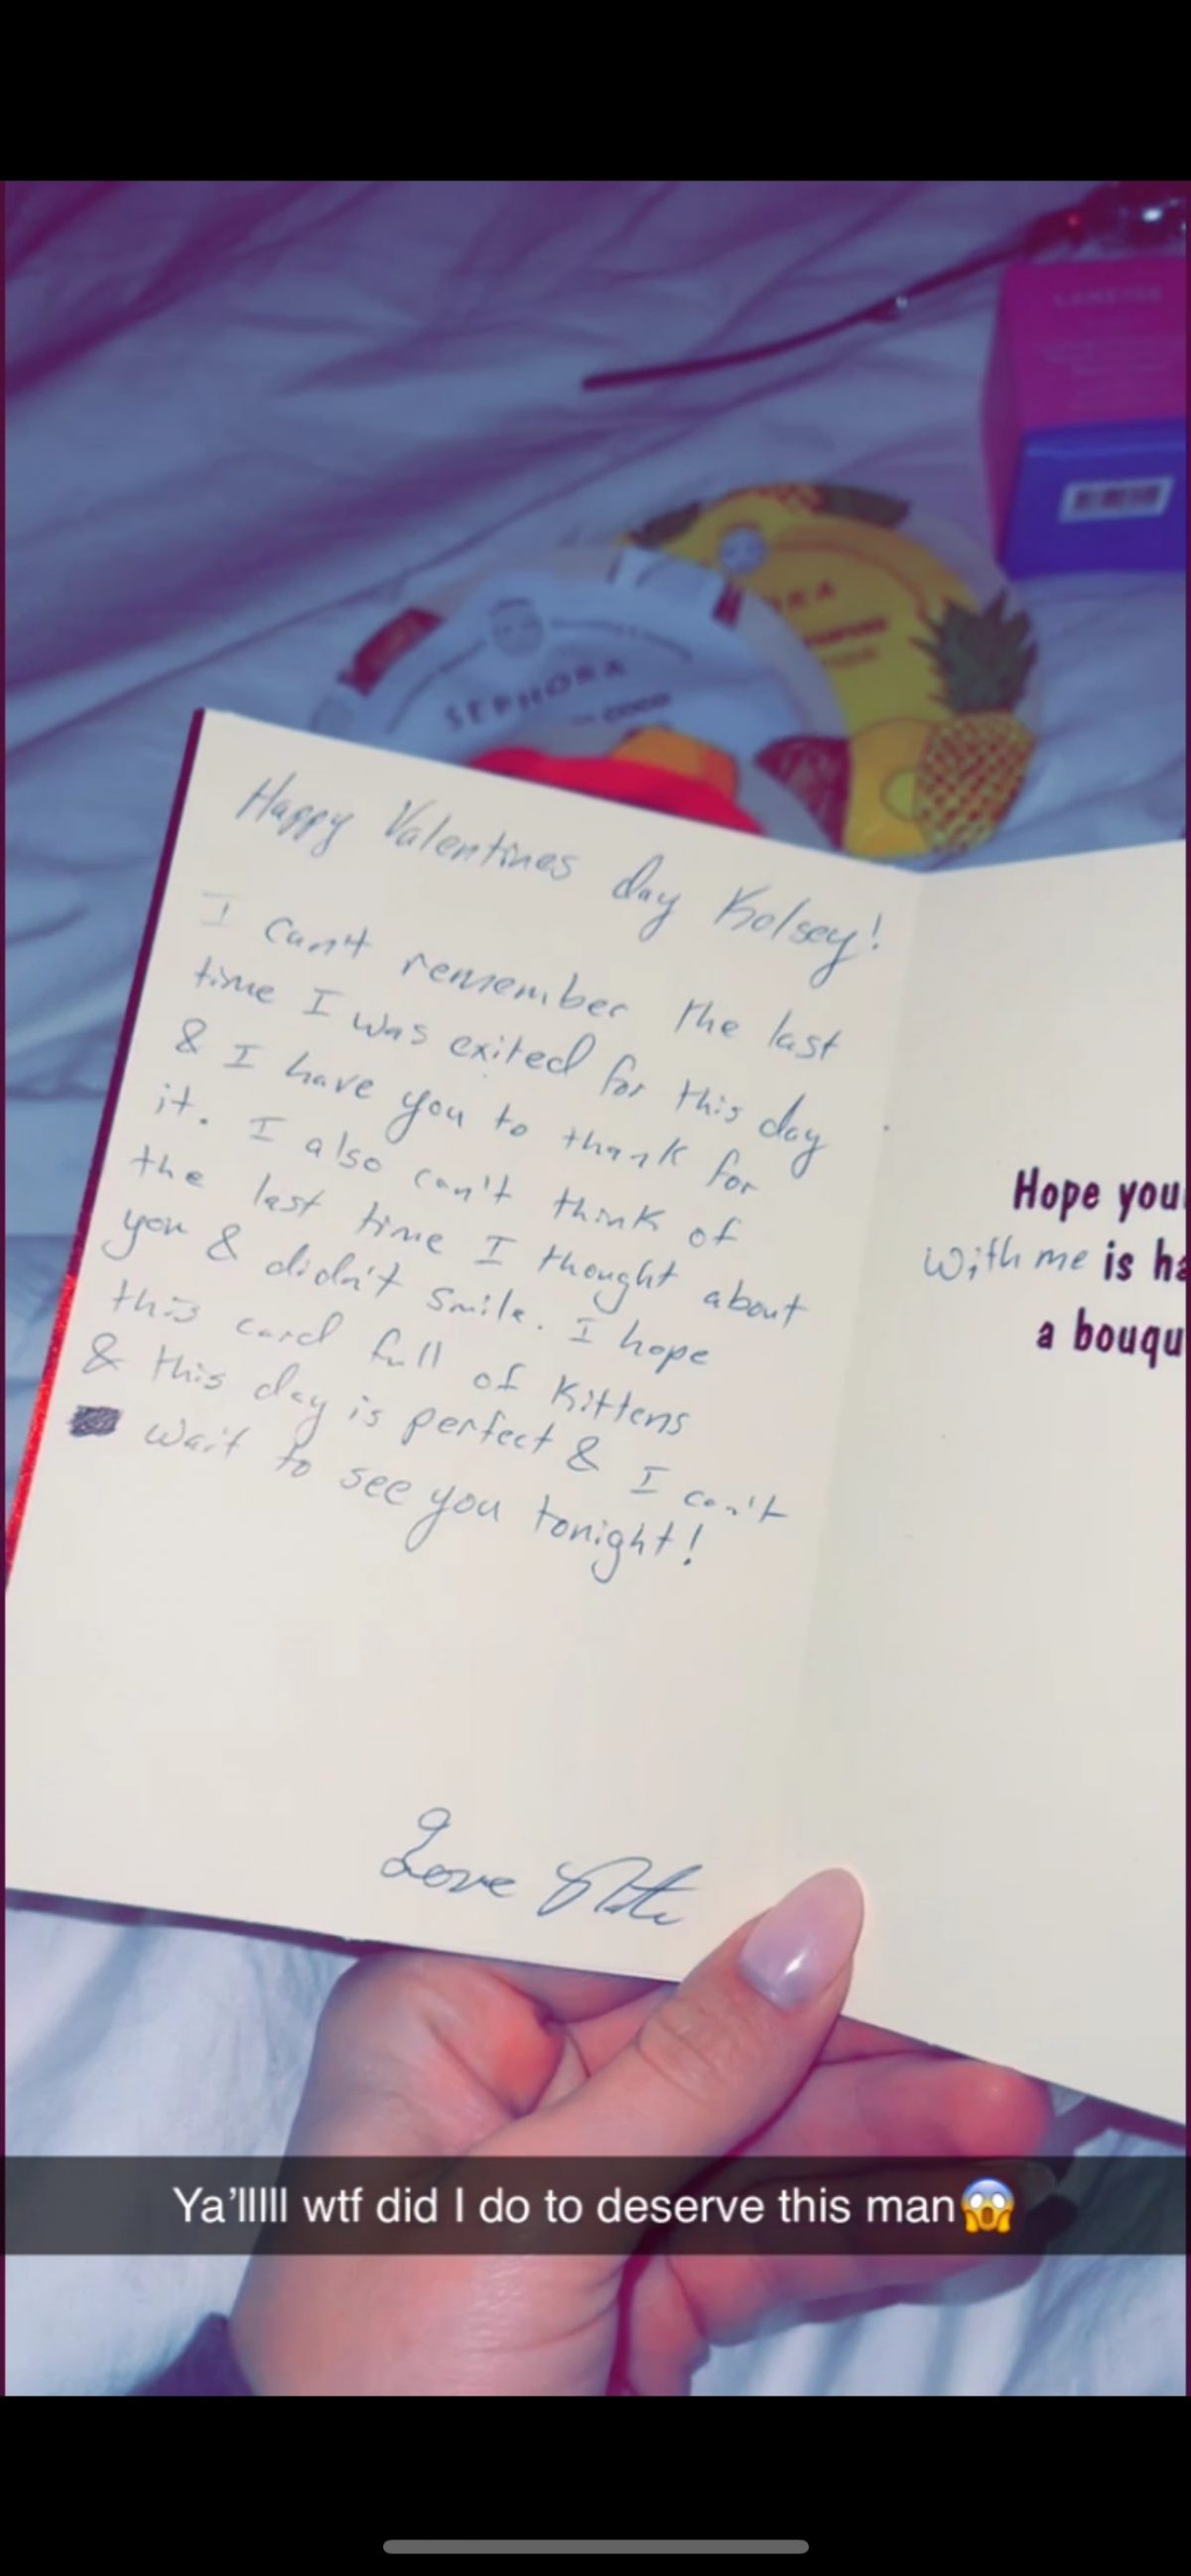 LANEIGE
SEPHORA
COCO
Happy Valentines day Kolsey!
I can't remember the last
time I was exited for this day
& I have you to thank for
it. I also can't think of
the last time I thought about
you & didn't smile. I hope
this card full of kittens
& this day is perfect & I can't
wait to see you tonight!
Love Nate
Hope you
with me is ha
a bouqu
Ya'lllll wtf did I do to deserve this man😱